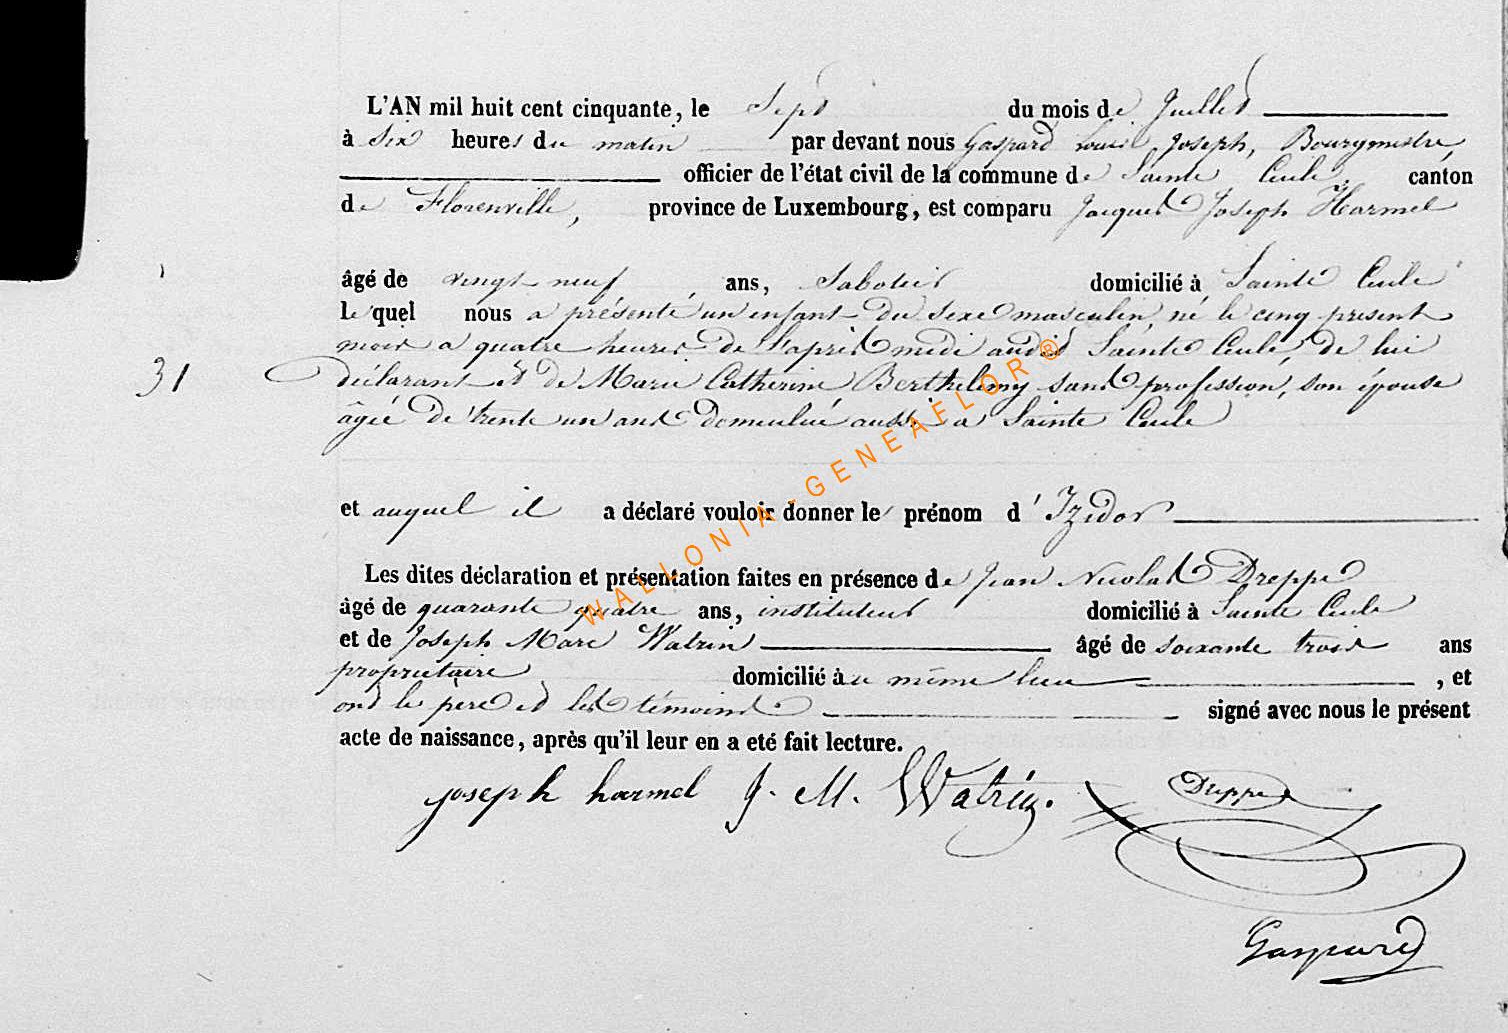 L'AN mil huit cent cinquante, le Sept du mois de Juillet
à Six heures du matin par devant nous Gaspard Louis Joseph, Bourgmestre,
officier de l'état civil de la commune de Sainte Cecile, canton
de Florenville, province de Luxembourg, est comparu Jacques Joseph Harmel
âgé de vingt neuf ans, Sabotier domicilié à Sainte Cecile
le quel nous a présenté un enfant du sexe masculin, né le cinq présent
mois a quatre heures de l'après midi audit Sainte Cecile, de lui
31 déclarant et de Marie Catherine Berthelemy sans profession, son épouse
âgée de trente un ans domiciliée aussi a Sainte Cecile
et auquel il a déclaré vouloir donner le prénom d'Izidor
Les dites déclaration et présentation faites en présence de Jean Nicolas Dreppe
âgé de quarante quatre ans, instituteur domicilié à Sainte Cecile
et de Joseph Marc Watrin âgé de soixante trois ans
propriétaire domicilié au même lieu, et
ont le père et les témoins signé avec nous le présent
acte de naissance, après qu'il leur en a eté fait lecture.
joseph harmel J. M. Watrin. Dreppe
Gaspard
WALLONIA-GENEAFLOR®